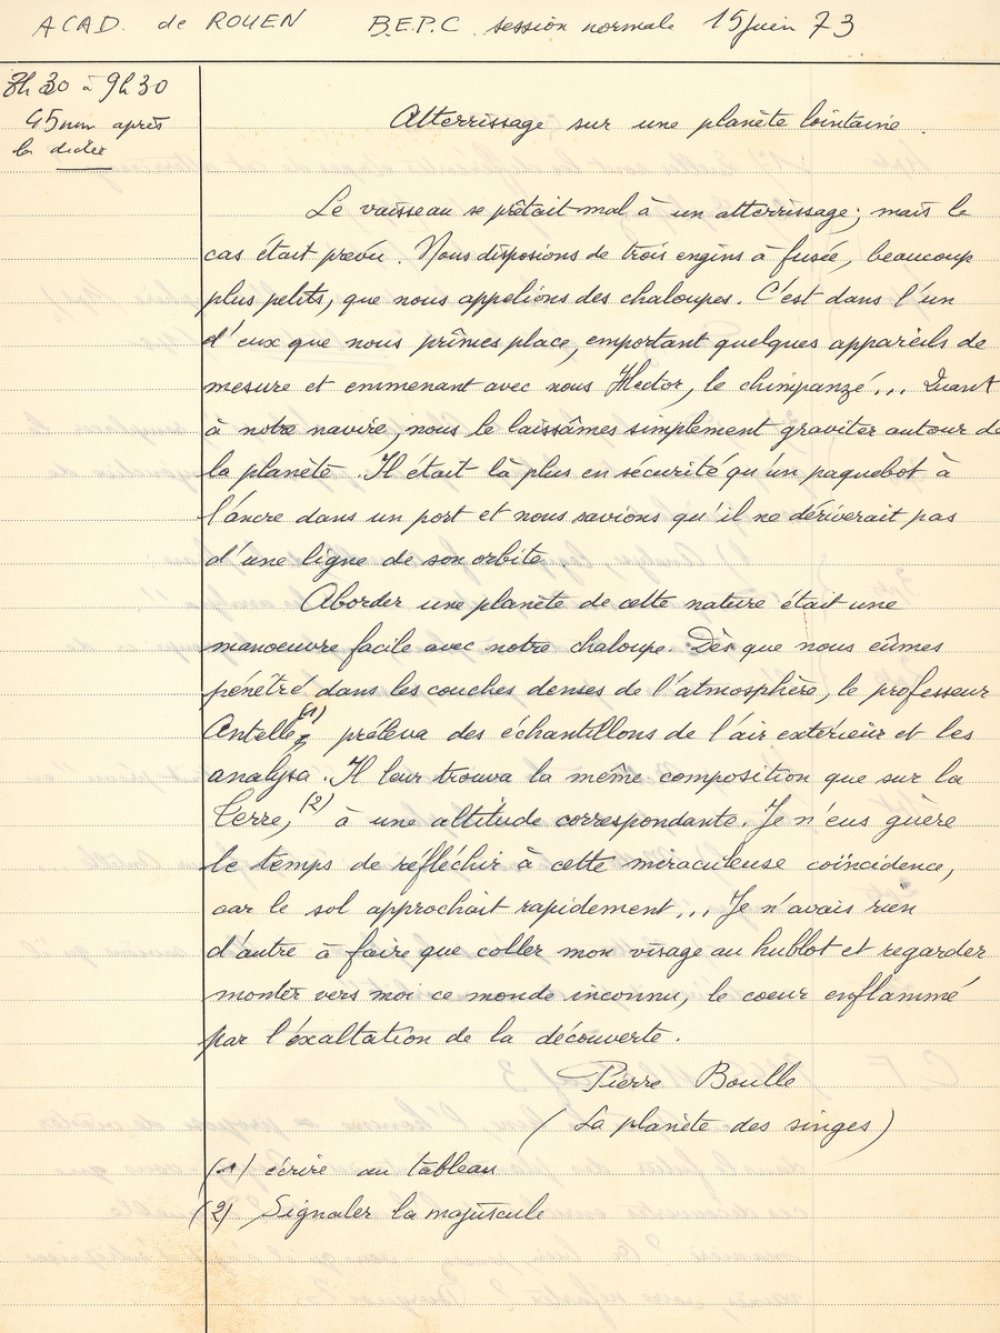 ACAD. de ROUEN B.E.P.C. session normale 15 juin 73
8h30 à 9h30
45mn après
la dictée
Atterrissage sur une planète lointaine.
Le vaisseau se prêtait mal à un atterrissage; mais le
cas était prévu. Nous disposions de trois engins à fusée, beaucoup
plus petits, que nous appelions des chaloupes. C'est dans l'un
d'eux que nous prîmes place, emportant quelques appareils de
mesure et emmenant avec nous Hector, le chimpanzé... Quant
à notre navire, nous le laissâmes simplement graviter autour de
la planète. Il était là plus en sécurité qu'un paquebot à
l'ancre dans un port et nous savions qu'il ne dériverait pas
d'une ligne de son orbite.
Aborder une planète de cette nature était une
manoeuvre facile avec notre chaloupe. Dès que nous eûmes
pénétré dans les couches denses de l'atmosphère, le professeur
Antelle (1) préleva des échantillons de l'air extérieur et les
analysa. Il leur trouva la même composition que sur la
Terre, (2) à une altitude correspondante. Je n'eus guère
le temps de réfléchir à cette miraculeuse coïncidence,
car le sol approchait rapidement... Je n'avais rien
d'autre à faire que coller mon visage au hublot et regarder
monter vers moi ce monde inconnu, le coeur enflammé
par l'exaltation de la découverte.
Pierre Boulle
(La planète des singes)
(1) écrire au tableau
(2) Signaler la majuscule